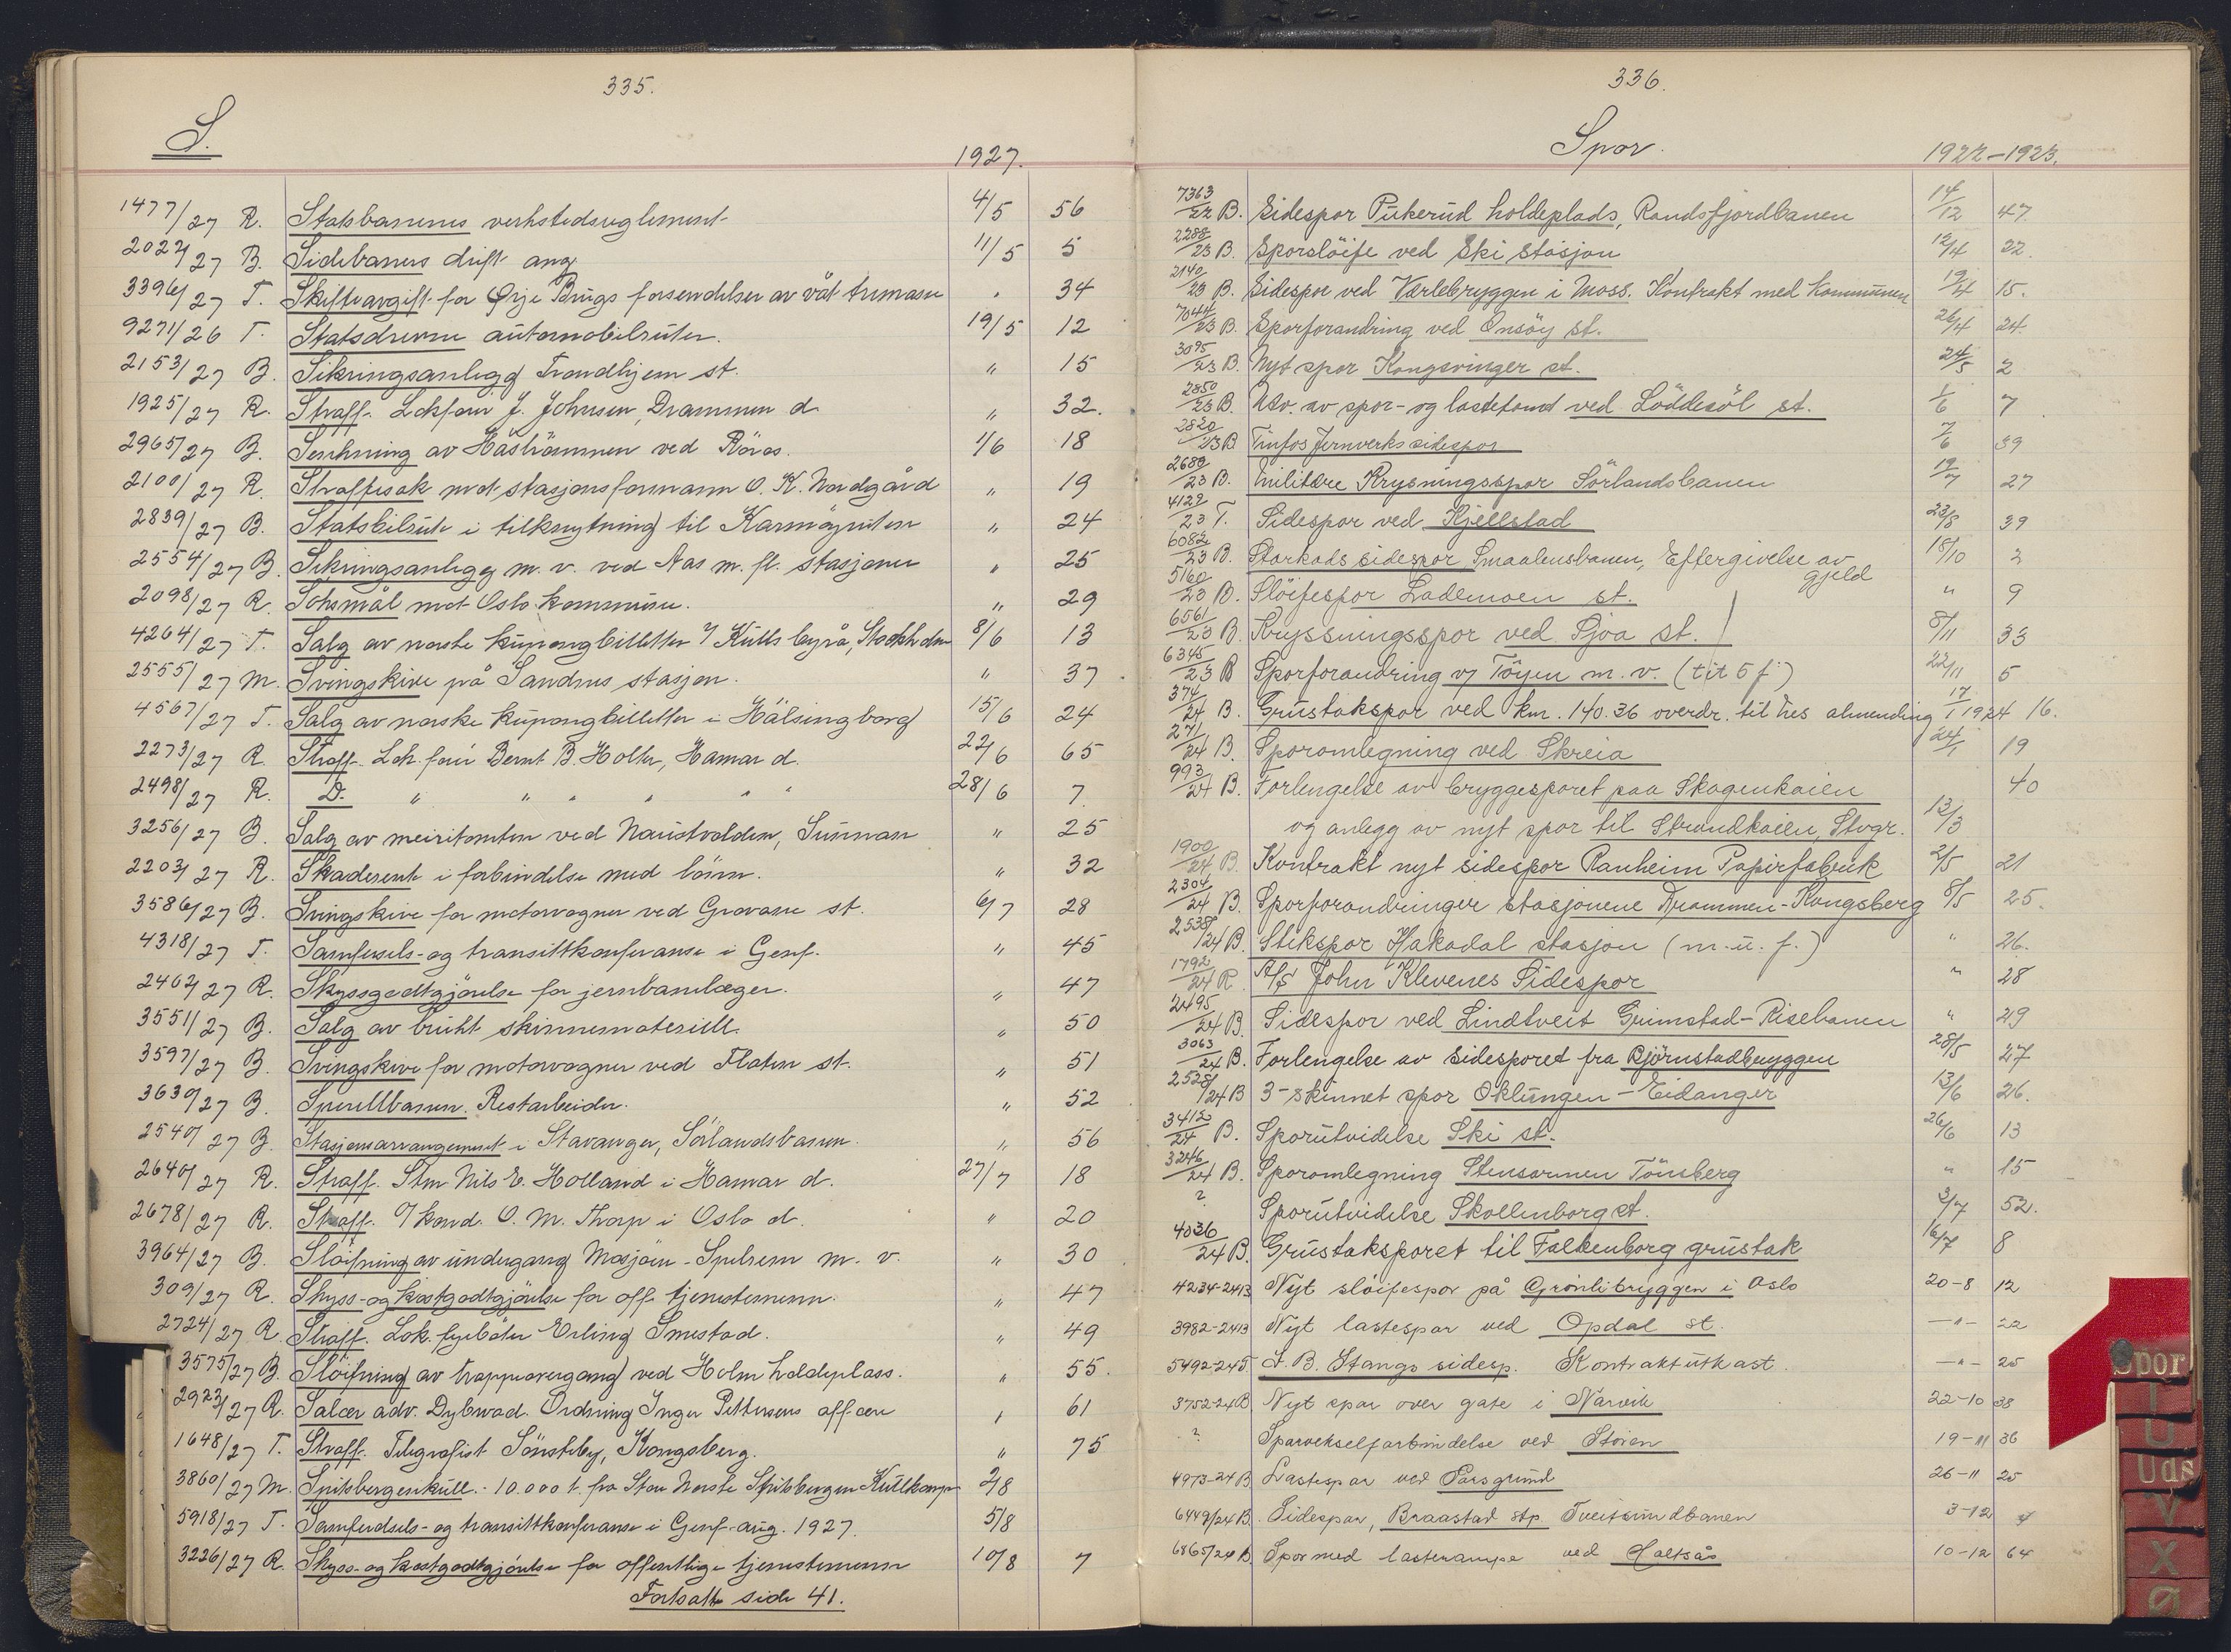 335.
S.
1927.
1477/27 R. Statsbanenes verkstedsreglement 4/5 56
2024/27 B. Sidebaners drift ang 11/5 5
3396/27 T. Skifteavgift for Ørje Brugs forsendelser av våt tremasse " 34
9271/26 T. Statsdrevne automobilruter. 19/5 12
2153/27 B. Sikringsanlegg Trondhjem st. " 15
1925/27 R. Straff. Lokfører J. Johnsen, Drammen d. " 32.
2965/27 B. Senkning av Håstrømmen ved Röros. 1/6 18
2100/27 R. Straffesak mot stasjonsformann O. K. Nordgård " 19
2839/27 B. Statsbilrute i tilknytning til Karmöyruten " 24
2554/27 B. Sikringsanlegg m. v. ved Aas m. fl. stasjoner " 25
2098/27 R. Söksmål mot Oslo kommune. " 29
4264/27 T. Salg av norske kupongbilletter v/ Kulls byrå, Stockholm 8/6 13
2555/27 M. Svingskive på Sandnes stasjon. " 37
4567/27 T. Salg av norske kupongbilletter i Hälsingborg 15/6 24
2273/27 R. Straff. Lok. före Bernt B. Holter, Hamar d. 22/6 65
2498/27 R. D. " " " " " " 28/6 7
3256/27 B. Salg av meieritomten ved Naustvolden, Sunnan " 25
2203/27 R. Skaderente i forbindelse med lönn. " 32
3586/27 B. Svingskive for motorvogner ved Grovane st. 6/7 28
4318/27 T. Samferdsels- og transittkonferanse i Genf. " 45
2462/27 R. Skyssgodtgjörelse for jernbanelæger. " 47
3551/27 B. Salg av brukt skinnemateriell. " 50
3597/27 B. Svingskive for motorvogner ved Flaten st. " 51
3630/27 B. Sperillbanen. Restarbeider. " 52
2540/27 B. Stasjonsarrangement i Stavanger, Sörlandsbanen. " 56
2640/27 R. Straff. Stm Nils E. Holland i Hamar d. 27/7 18
2678/27 R. Straff. O/kond. O. M. Thorp i Oslo d. " 20
3964/27 B. Slöifning av undergang Mosjöen - Spelrem m. v. " 30
309/27 R. Skyss- og kostgodtgjörelse for off. tjenestemenn. " 47
2724/27 R. Straff. Lok. fyrböter Erling Smestad. " 49
3575/27 B. Slöifning av trappeovergang ved Holm holdeplass. " 55.
2923/27 R. Salær adv. Dybwad. Ordning Inger Pettersens aff-ære " 61
1648/27 T. Straff. Telegrafist Sönsteby, Kongsberg. " 75
3860/27 M. Spitsbergenkull. - 10.000 t. fra Store Norske Spitsbergen Kullkomp 2/8
5918/27 T. Samferdsels- og transittkonferanse i Genf aug. 1927. 5/8
3226/27 R. Skyss- og kostgodtgjörelse for offentlige tjenestemenn 10/8 7
Fortsatte side 41.
336.
Spor.
1922-1923.
7363/22 B. Sidespor Pukerud holdeplads, Randsfjordbanen 14/12 47
2288/23 B. Sporslöife ved Ski stasjon 12/4 22.
2140/23 B. Sidespor ved Værlebryggen i Moss. Kontrakt med Kommunen 19/4 15.
7044/23 B. Sporforandring ved Onsöy st. 26/4 24.
3095/23 B. Nyt spor Kongsvinger st. 24/5 2
2850/23 B. Utv. av spor- og lastetomt ved Löddesöl st. 1/6 7
2820/23 B. Tinfos Jernverks sidespor 7/6 39
2688/23 B. Militære Krysningsspor Sörlandsbanen 19/7 27
4122/23 T. Sidespor ved Kjellstad 23/8 39
6082/23 B. Storkads sidespor Smaalensbanen, Eftergivelse av gjeld 18/10 2
5160/23 B. Slöifespor Lademoen st. " 9
6561/23 B. Kryssningsspor ved Sjoa st. 8/11 33
6345/23 B Sporforandring v/ Töyen m. v. (tit 5 f.) 22/11 5
374/24 B. Grustakspor ved km. 140.36 overdr. til Nes almending 17/1 1924 16.
271/24 B. Sporomlegning ved Skreia 24/1 19
993/24 B. Forlengelse av bryggesporet paa Skagenkaien 40
og anlegg av nyt spor til Strandkaien, Stvgr. 13/3
1900/24 B. Kontrakt nyt sidespor Ranheim Papirfabrik 2/5 21
2304/24 B. Sporforandringer stasjonene Drammen - Kongsberg 8/5 25.
2538/24 B. Stikspor Hakadal stasjon (m. u. f.) " 26.
1792/24 R. A/S John Klevenes Sidespor " 28
2495/24 B. Sidespor ved Lindtveit Grimstad-Risebanen " 29
3063/24 B. Forlengelse av sidesporet fra Björnstadbryggen 28/5 27
2528/24 B 3-skinnet spor Oklungen - Eidanger 13/6 26.
3412/24 B. Sporutvidelse Ski st. 26/6 13
3246/24 B. Sporomlegning Stensarmen Tönsberg " 15
? Sporutvidelse Skollenborg st. 3/7 52.
4036/24 B. Grustaksporet til Falkenborg grustak 16/7 8
4234-24 B Nyt slöifespor på Grönlibryggen i Oslo 20-8 12
3982-24 B Nyt lastespor ved Opdal st. -"- 22
5492-24 T J. B. Stangs sidesp. Kontraktutkast. -"- 25
3752-24 B Nyt spor over gate i Narvik 22-10 38
? Sporvekselforbindelse ved Stören 19-11 36
4973-24 B Lastespor ved Porsgrund 26-11 25
6449/24 B. Sidespor, Braastad stp Tveitsundbanen 3-12 4
6865/24 B. Spor med lasterampe ved Holtsås 10-12 64
Spor
T
U
Uds
V
X
Ø